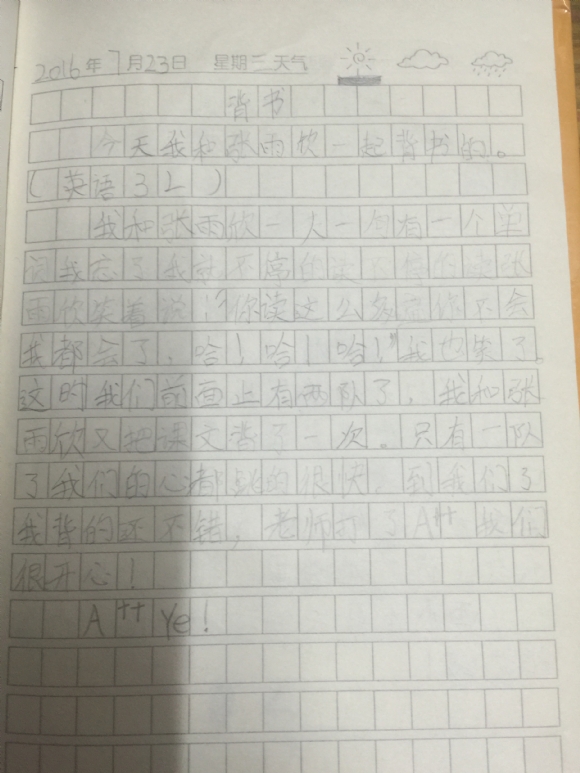 2016年7月23日 星期三 天气
背书
今天我和张雨欣一起背书的。
(英语3L)
我和张雨欣一人一句有一个单
词我忘了我就不停的读不停的读张
雨欣笑着说:"你读这么多遍你不会
我都会了,哈!哈!哈!"我也笑了。
这时我们前面止有两队了,我和张
雨欣又把课文背了一次。只有一队
了我们的心都跳的很快,到我们了
我背的还不错,老师打了A++我们
很开心!
A++ Ye!